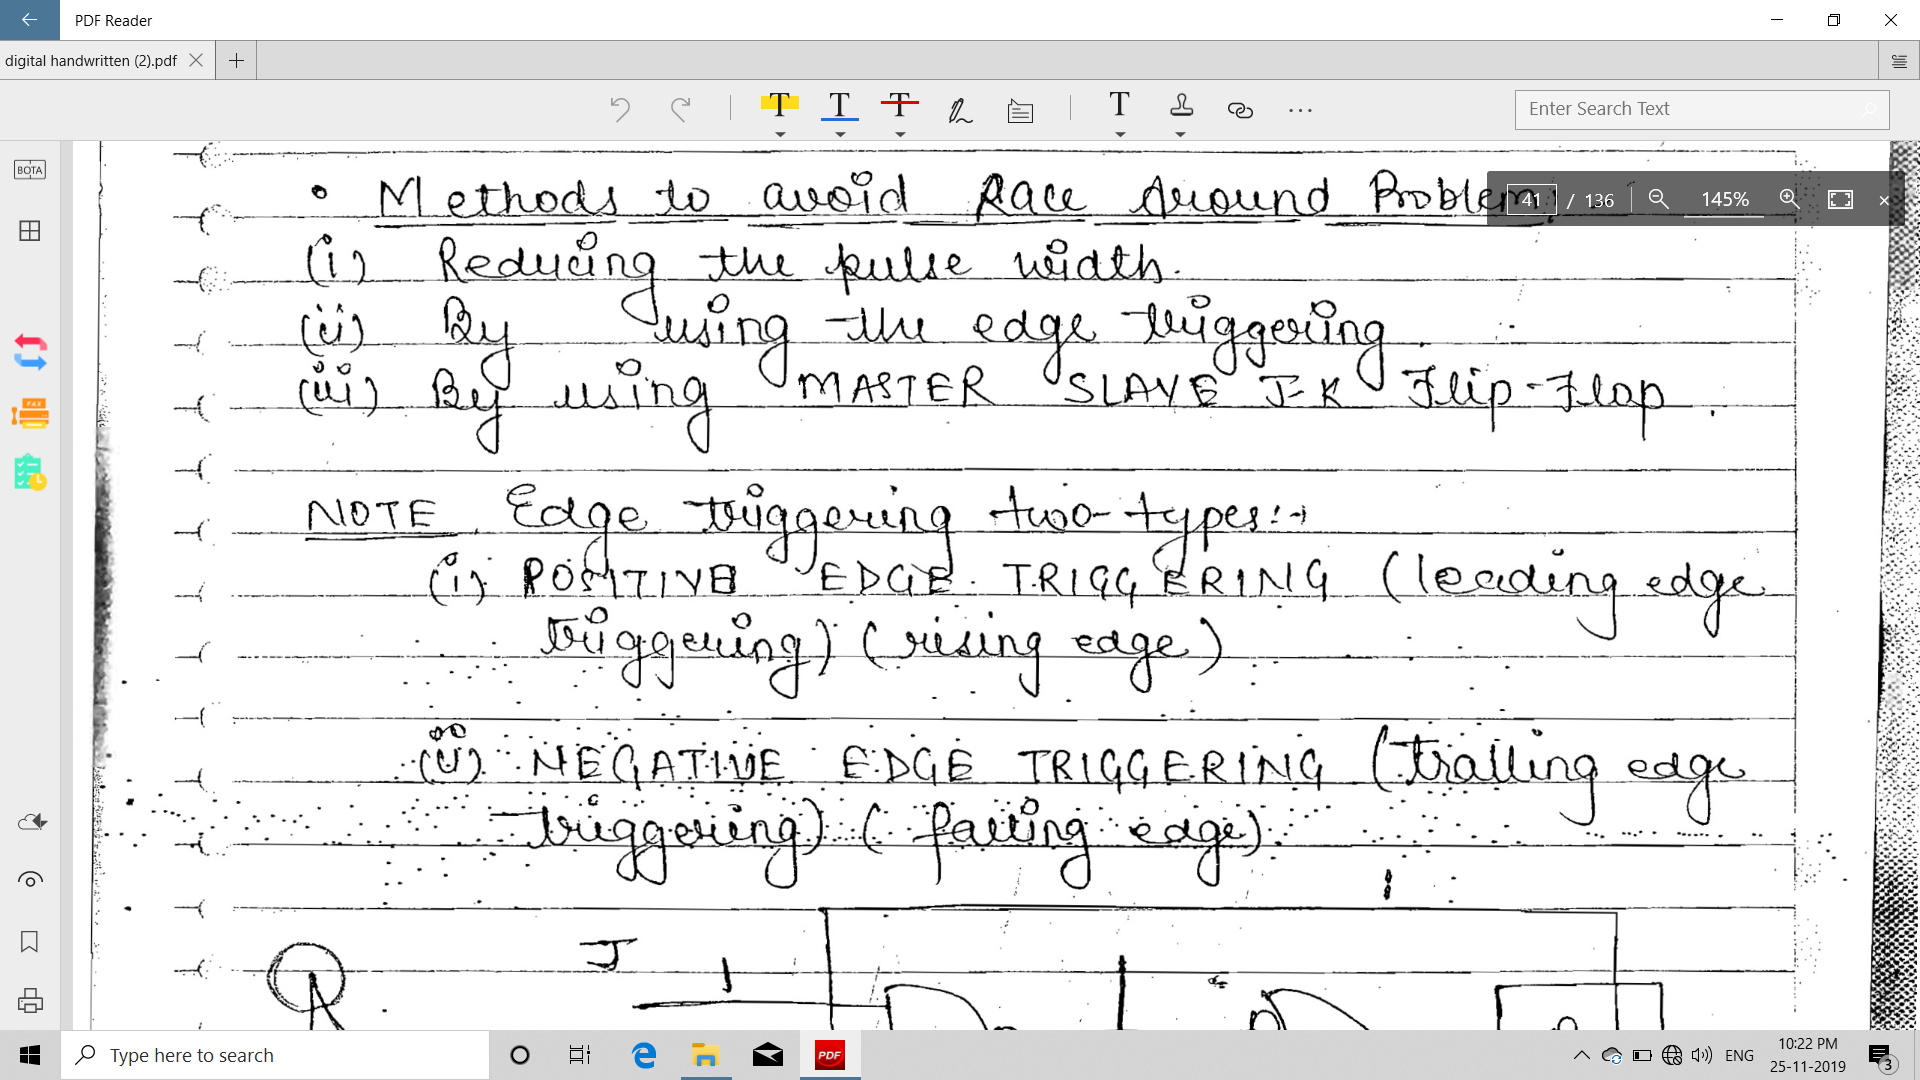 PDF Reader
digital handwritten (2).pdf
T T T T
Enter Search Text
BOTA
41 / 136 145%
• Methods to avoid Race Around Problem
(i) Reducing the pulse width.
(ii) By using the edge triggering.
(iii) By using MASTER SLAVE J-K Flip-Flop.
NOTE Edge triggering two-types:→
(i) POSITIVE EDGE TRIGGERING (leading edge
triggering) (rising edge)
(ii) NEGATIVE EDGE TRIGGERING (trailing edge
triggering) (falling edge)
J
1
FAX
Type here to search
PDF
ENG
10:22 PM
25-11-2019
3